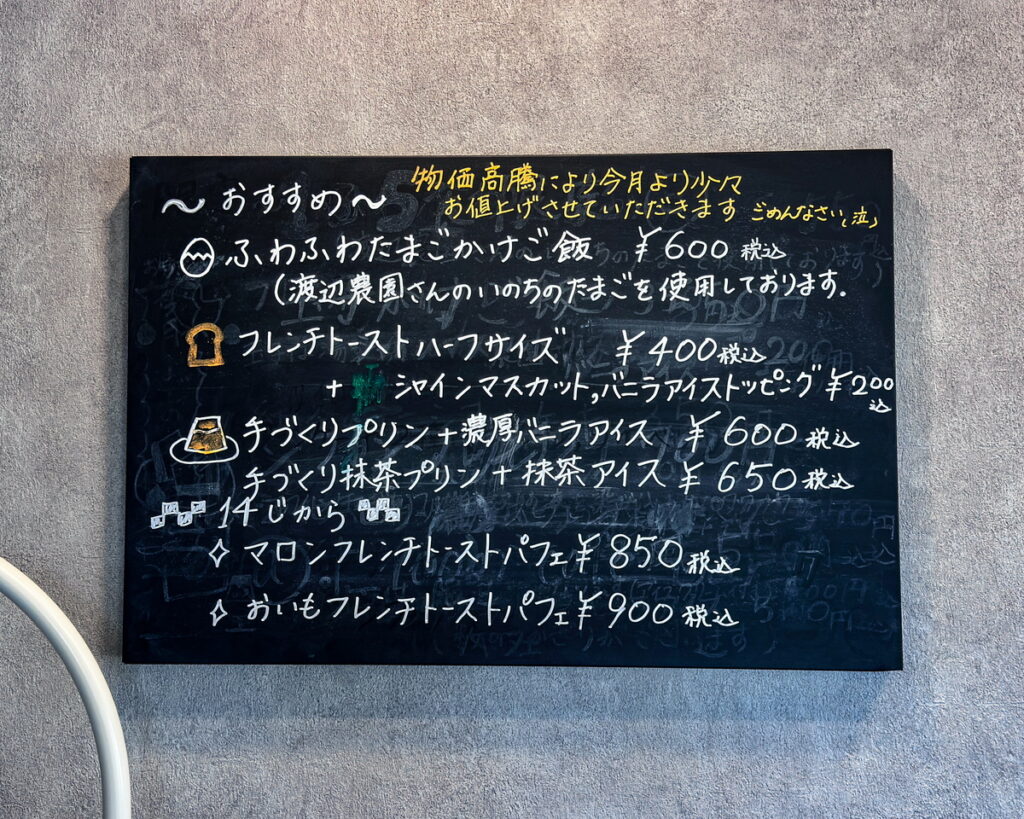 〜おすすめ〜
物価高騰により今月より少々
お値上げさせていただきます ごめんなさい(泣)
ふわふわたまごかけご飯 ¥600 税込
(渡辺農園さんのいのちのたまごを使用しております.
フレンチトーストハーフサイズ ¥400税込
+ シャインマスカット,バニラアイストッピング ¥200
込
手づくりプリン+濃厚バニラアイス ¥600 税込
手づくり抹茶プリン+抹茶アイス ¥650税込
14じから
✧ マロンフレンチトーストパフェ¥850税込
✧ おいもフレンチトーストパフェ¥900税込